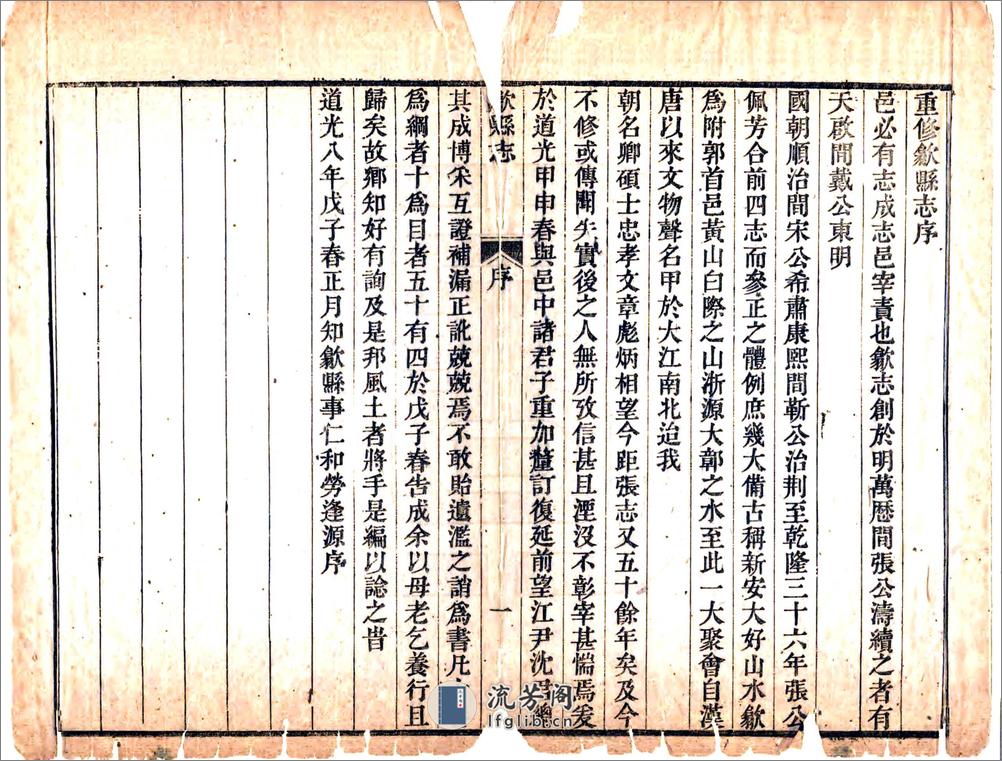 重修歙縣志序
邑必有志成志邑宰責也歙志創於明萬曆間張公濤續之者有
天啟間戴公東明
國朝順治間宋公希肅康熙間靳公治荆至乾隆三十六年張公
佩芳合前四志而參正之體例庶幾大備古稱新安大好山水歙
為附郭首邑黃山白際之山浙源大鄣之水至此一大聚會自漢
唐以來文物聲名甲於大江南北迨我
朝名卿碩士忠孝文章彪炳相望今距張志又五十餘年矣及今
不修或傳聞失實後之人無所攷信甚且湮沒不彰宰甚惴焉爰
於道光甲申春與邑中諸君子重加釐訂復延前望江尹沈君
歙縣志 序 一
其成博采互證補漏正訛兢兢焉不敢貽遺濫之誚為書凡
為綱者十為目者五十有四於戊子春告成余以母老乞養行且
歸矣故鄉知好有詢及是邦風土者將手是編以諗之昔
道光八年戊子春正月知歙縣事仁和勞逢源序
流芳阁
lfglib.cn